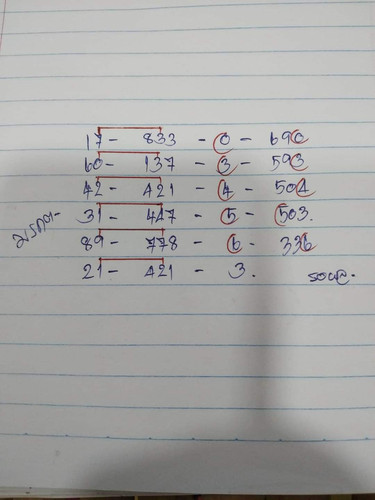 17 - 833 - 0 - 690
60 - 137 - 3 - 593
42 - 421 - 4 - 504
31 - 447 - 5 - 503.
89 - 778 - 6 - 336
21 - 421 - 3.